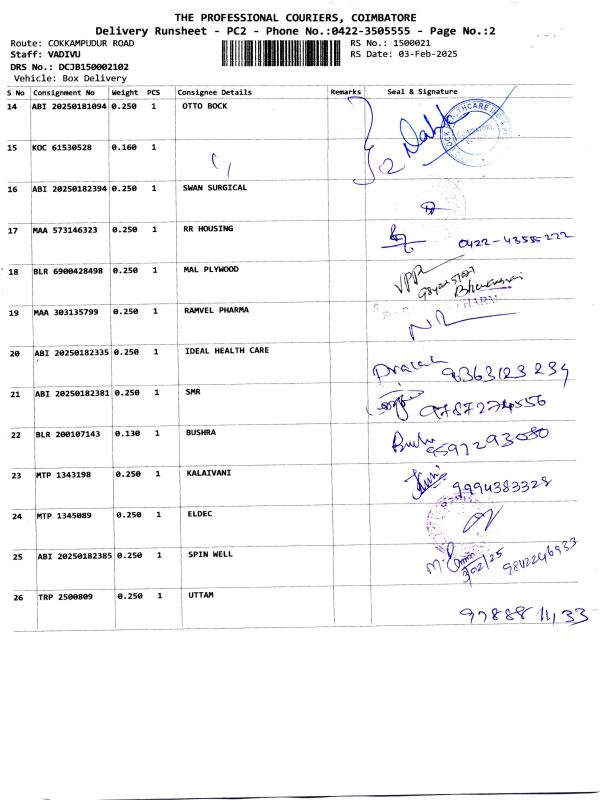 THE PROFESSIONAL COURIERS, COIMBATORE
Delivery Runsheet - PC2 - Phone No.:0422-3505555 - Page No.:2
Route: COKKAMPUDUR ROAD RS No.: 1500021
Staff: VADIVU RS Date: 03-Feb-2025
DRS No.: DCJB150002102
Vehicle: Box Delivery
S No Consignment No Weight PCS Consignee Details Remarks Seal & Signature
14 ABI 20250181094 0.250 1 OTTO BOCK
15 KOC 61530528 0.160 1
16 ABI 20250182394 0.250 1 SWAN SURGICAL
17 MAA 573146323 0.250 1 RR HOUSING 0422-4355222
18 BLR 6900428498 0.250 1 MAL PLYWOOD
19 MAA 303135799 0.250 1 RAMVEL PHARMA
20 ABI 20250182335 0.250 1 IDEAL HEALTH CARE 9363123234
21 ABI 20250182381 0.250 1 SMR 9787274556
22 BLR 200107143 0.130 1 BUSHRA 9597293080
23 MTP 1343198 0.250 1 KALAIVANI 9994383328
24 MTP 1345089 0.250 1 ELDEC
25 ABI 20250182385 0.250 1 SPIN WELL 9842246933
26 TRP 2500809 0.250 1 UTTAM